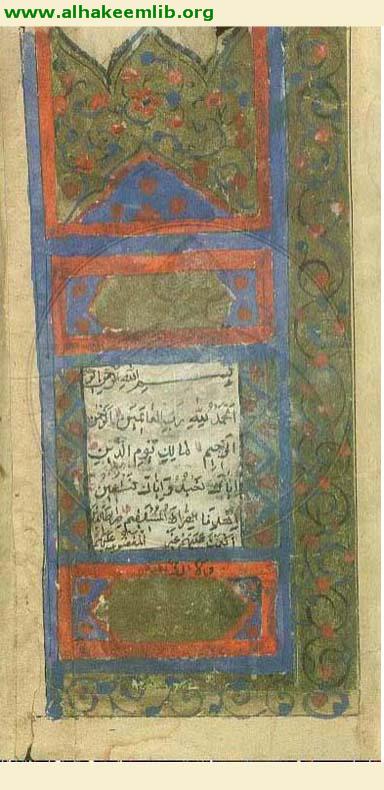 www.alhakeemlib.org
بسم الله الرحمن الرحيم
الحمد لله رب العالمين الرحمن
الرحيم مالك يوم الدين
اياك نعبد واياك نستعين
اهدنا الصراط المستقيم صراط الذين
انعمت عليهم غير المغضوب عليهم
ولا الضالين